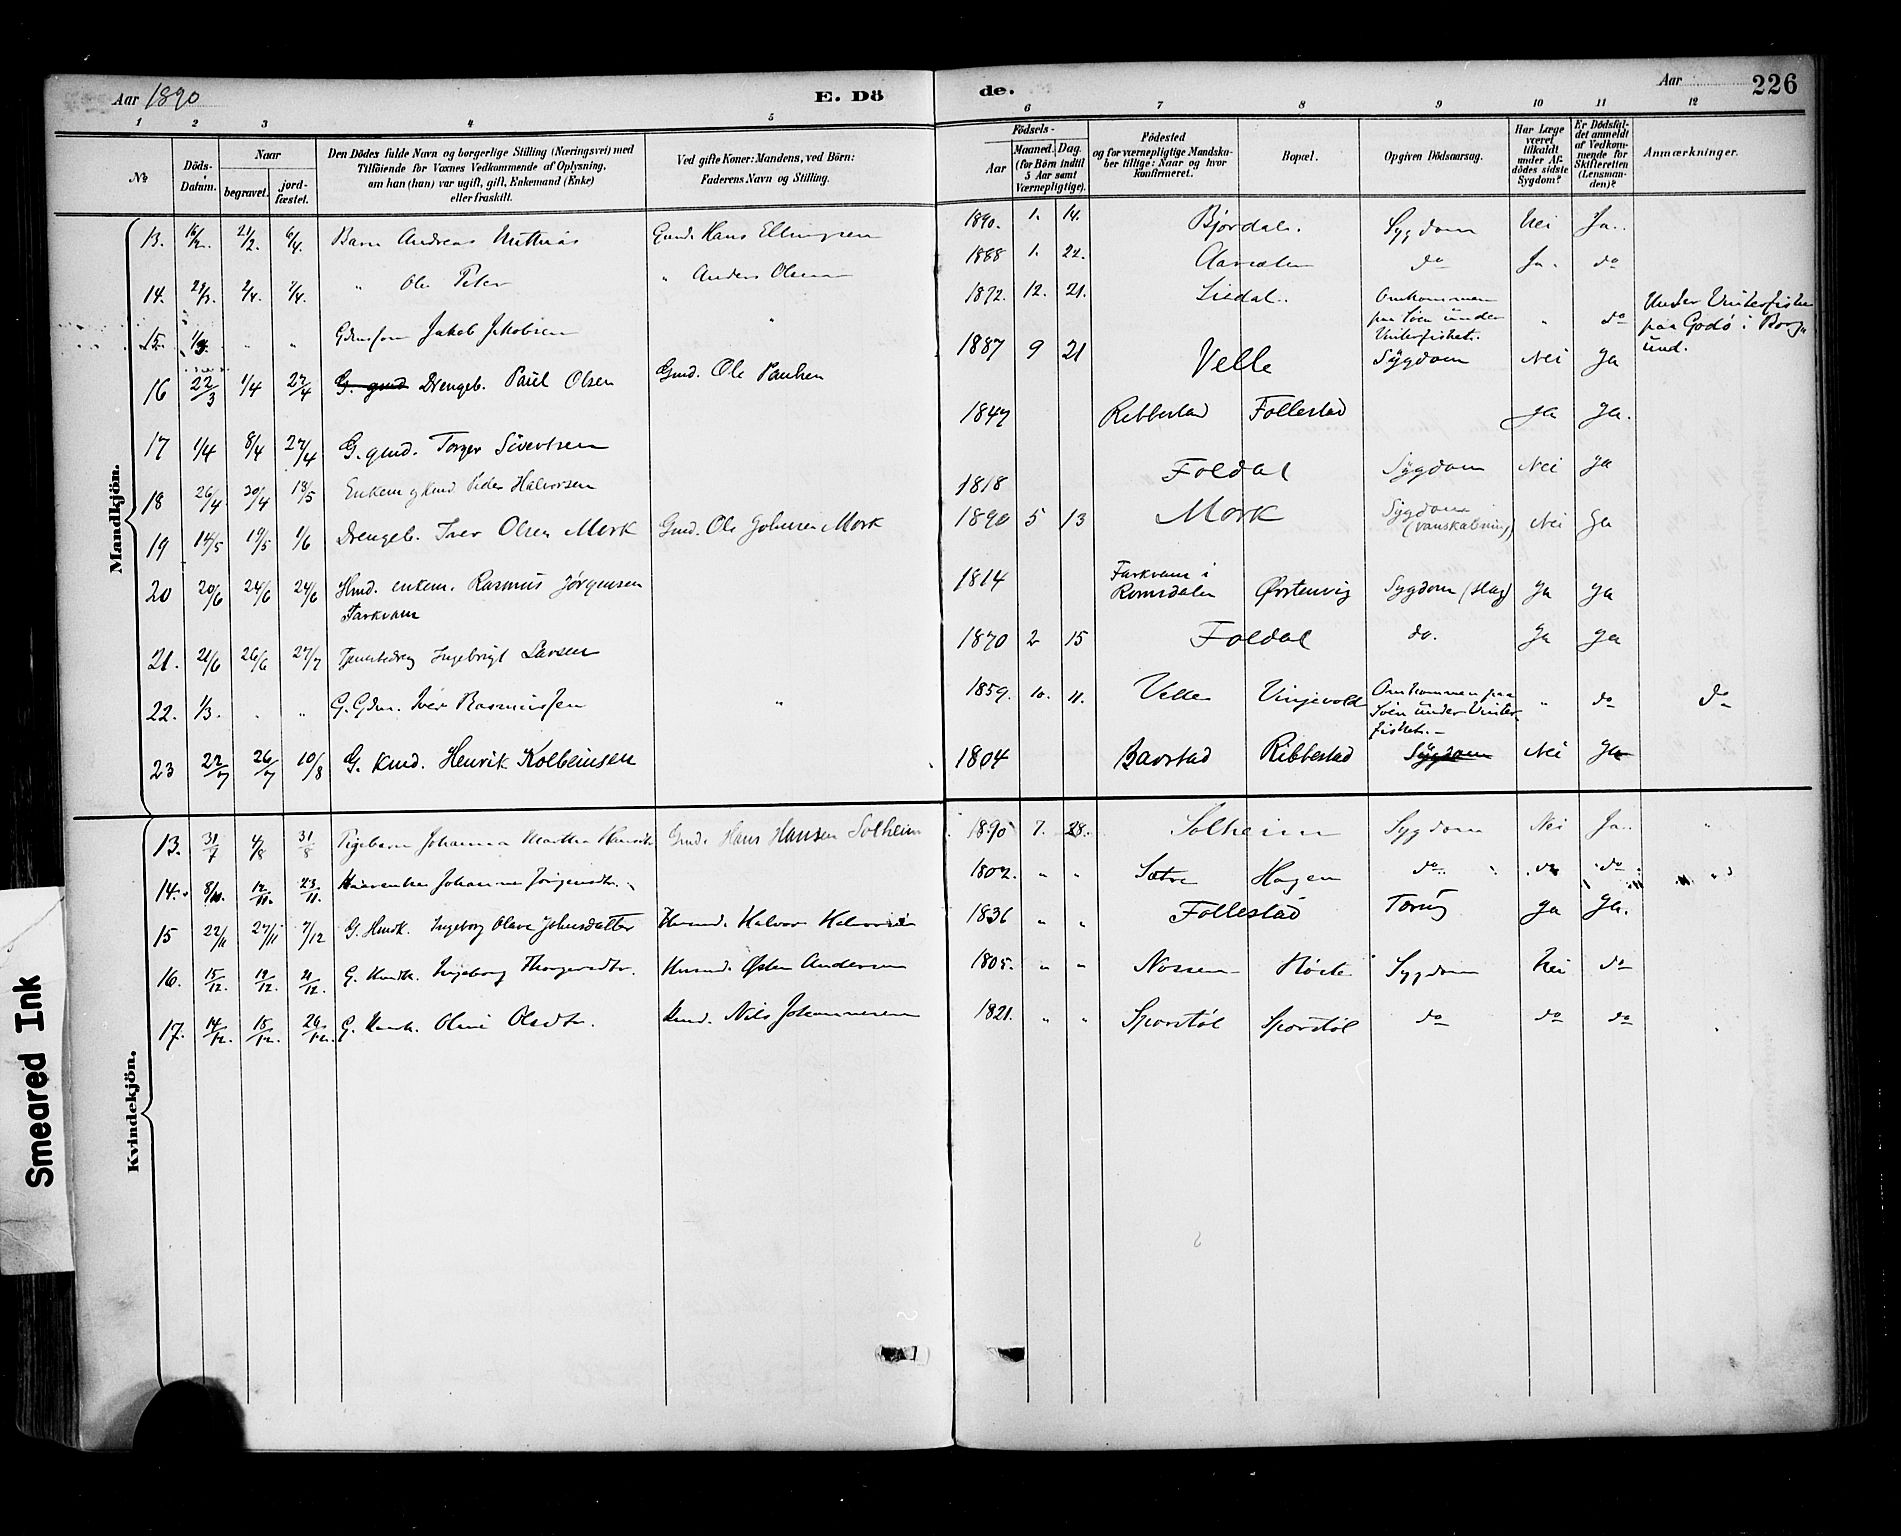 Aar 1890
E. Dö
de.
Aar
226
1 2 3 4 5 6 7 8 9 10 11 12
No
Döds-Datum.
Naar
begravet.
jord-fæstet.
Den Dödes fulde Navn og borgerlige Stilling (Næringsvei) med
Tilföiende for Voxnes Vedkommende af Oplysning,
om han (hun) var ugift, gift, Enkemand (Enke)
eller fraskilt.
Ved gifte Koner: Mandens, ved Börn:
Faderens Navn og Stilling.
Födsels-
Aar
Maaned. Dag.
(for Börn indtil
5 Aar samt
Værnepligtige).
Födested
og for værnepligtige Mandska-
ber tillige: Naar og hvor
konfirmeret.
Bopæl.
Opgiven Dödsaarsag.
Har Læge
været
tilkaldt
under Af-
dödes sidste
Sygdom?
Er Dödsfal-
det anmeldt
af Vedkom-
mende for
Skifteretten
(Lensman-
den)?
Anmærkninger.
Mandkjön.
13. 16/2. 21/2. 6/4. Barn Andreas Gmd. Hans Ellingsen 1890. 1. 14. Bjørdal. Sygdom Nei Ja.
14. 2/4. 7/4. " Ole Peter " Anders Olsen 1888 1. 22. do Ja. do
15. 1/3. " " Jakob Jakobsen " 1872. 12. 21. Omkommen
paa Søen under
Vinterfisket. " do Under Vinterfisket
paa Godø i Borg-
und.
16 22/3 1/4 27/4 G. gmd Drengeb. Paul Olsen Gmd. Ole Paulsen 1887 9 21 Velle Sygdom Nei Ja
17 1/4 8/4 27/4 G. gmd. Torger Sivertsen 1847 Ribbestad Follestad Ja Ja.
18 26/4 30/4 18/5 Peder Halvorsen 1818 Foldal Sygdom Nei Ja
19 14/5 19/5 1/6 Drengeb. Iver Olsen Mork Gmd. Ole Johnsen Mork 1890 5 13 Mork Sygdom
Nei Ja
20 20/6 24/6 24/6 Hmd. enkem. Rasmus Jørgensen
Farkvam 1814 Farkvam i
Romsdalen Ørstenvig Sygdom (slag) Ja Ja
21. 21/6 26/6 27/7 Ingebrigt Larsen 1870 2 15 Foldal do. Ja Ja
22. 1/3. " " G. Gdm. Iver Rasmussen " 1859. 10. 11. Velle Vinjevold Omkommen paa
Søen under Vinter-
fisket. " do do
23 22/7 26/7 10/8 G. Kmd. Henrik Kolbeinsen 1804 Bavstad Ribbestad Sygdom Nei Ja
Kvindekjön.
13. 31/7 4/8 31/8 Pigebarn Johanna Martha Gmd. Hans Hansen Solheim 1890 7. 28. Solheim Sygdom Nei Ja. "
14. 8/11. 12/11. 23/11. Johanne Jørgensdtr. 1802. " " Sætre Hagen do do do
15 22/11 27/11 7/12 G. Hmdk. Ingeborg Olave Johnsdatter Husmd. Halvor 1836 " " Follestad Tæring Ja Ja.
16. 15/12. 19/12. 21/12. G. Ingeborg Thorgersdtr. Husmd. Østen Andersen 1805. " " Nossen Sygdom Nei do
17. 14/12. 18/12. 26/12. G. Oline Olsdtr. Kmd. Nils Johannesen 1821. " " Sporstøl Sporstøl do do do
Smeared Ink